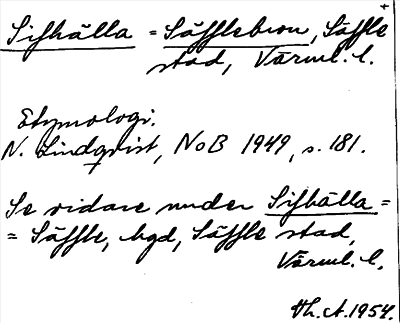 Sifhälla = Säfflebron, Säffle
stad, Värml. l.
Etymologi.
N. Lindqvist, NoB 1949, s. 181.
Se vidare under Sifhälla =
= Säffle, bgd, Säffle stad,
Värml. l.
Th. A. 1954.